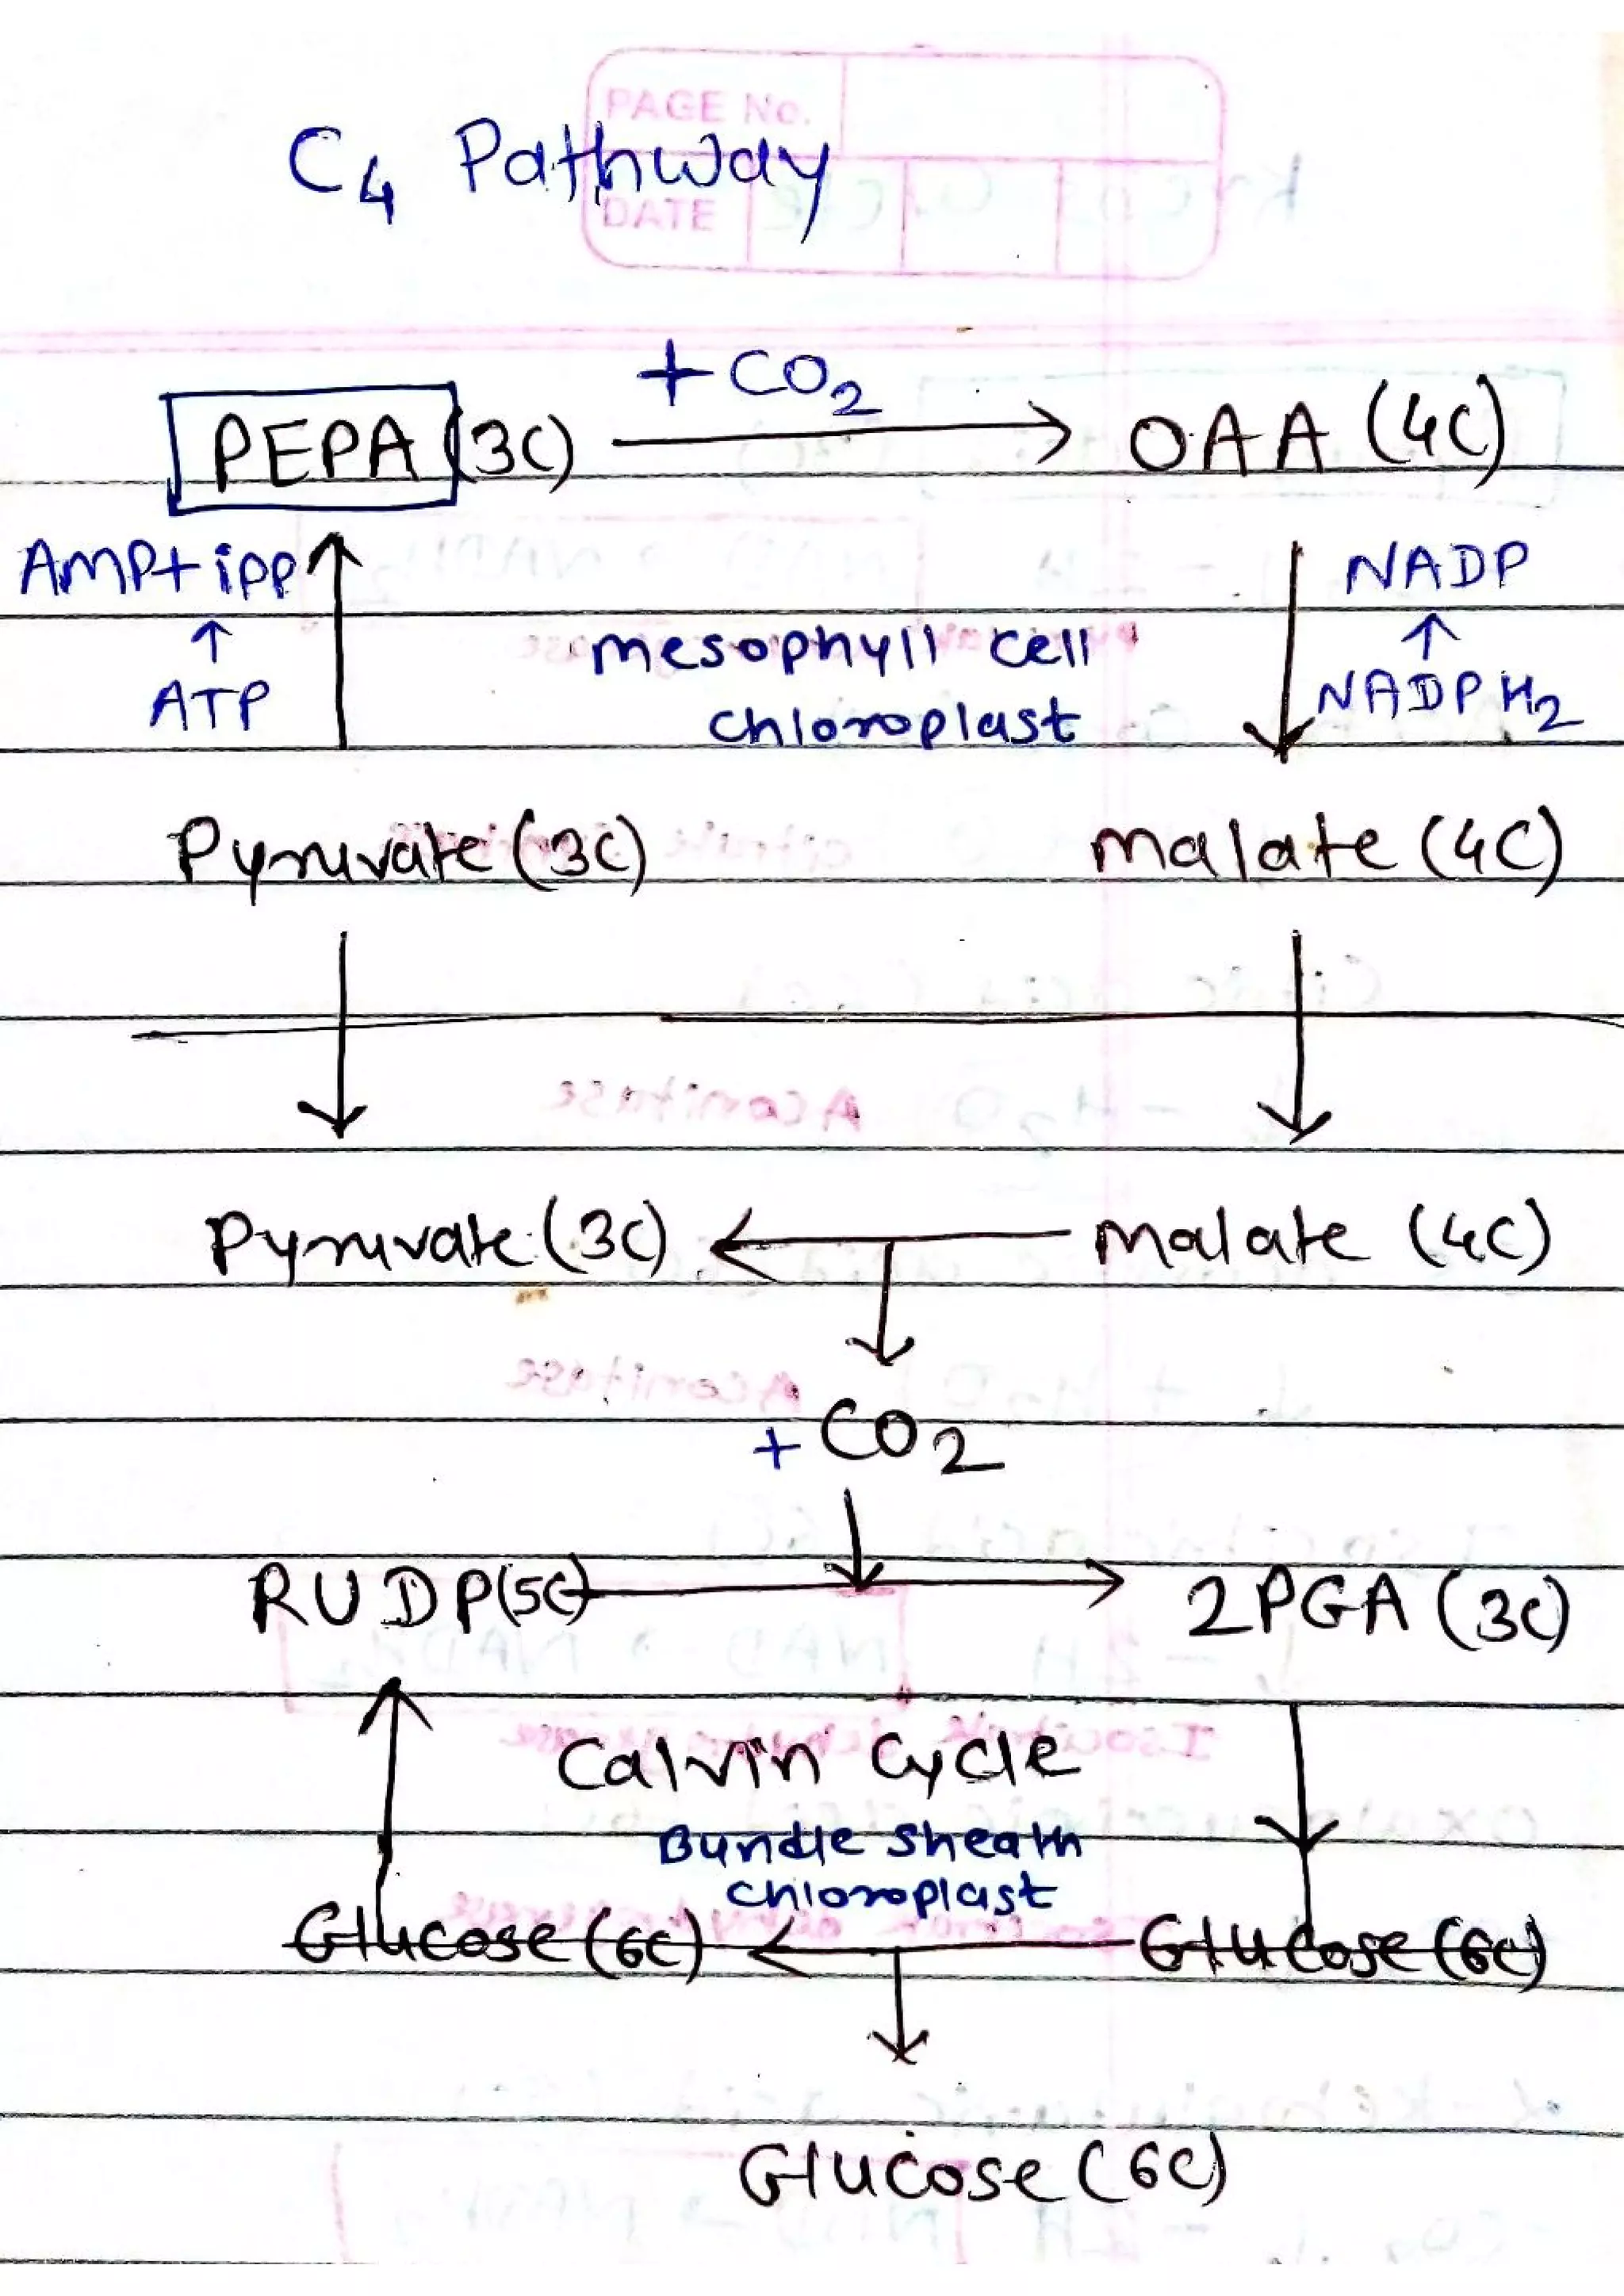 PAGE No.
C4 Pathway
DATE
+ CO2
PEPA (3C) → OAA (4C)
AMP+ ipp ↑ NADP
↑ mesophyll cell ↑
ATP chloroplast ↓ NADPH2
Pyruvate (3C) malate (4C)
↓ ↓
Pyruvate (3C) ← malate (4C)
↓
+ CO2
↓
RUDP(5C) → 2PGA (3C)
↑ Calvin Cycle ↓
Bundle sheath
chloroplast
Glucose (6C) ← Glucose (6C)
↓
Glucose (6C)